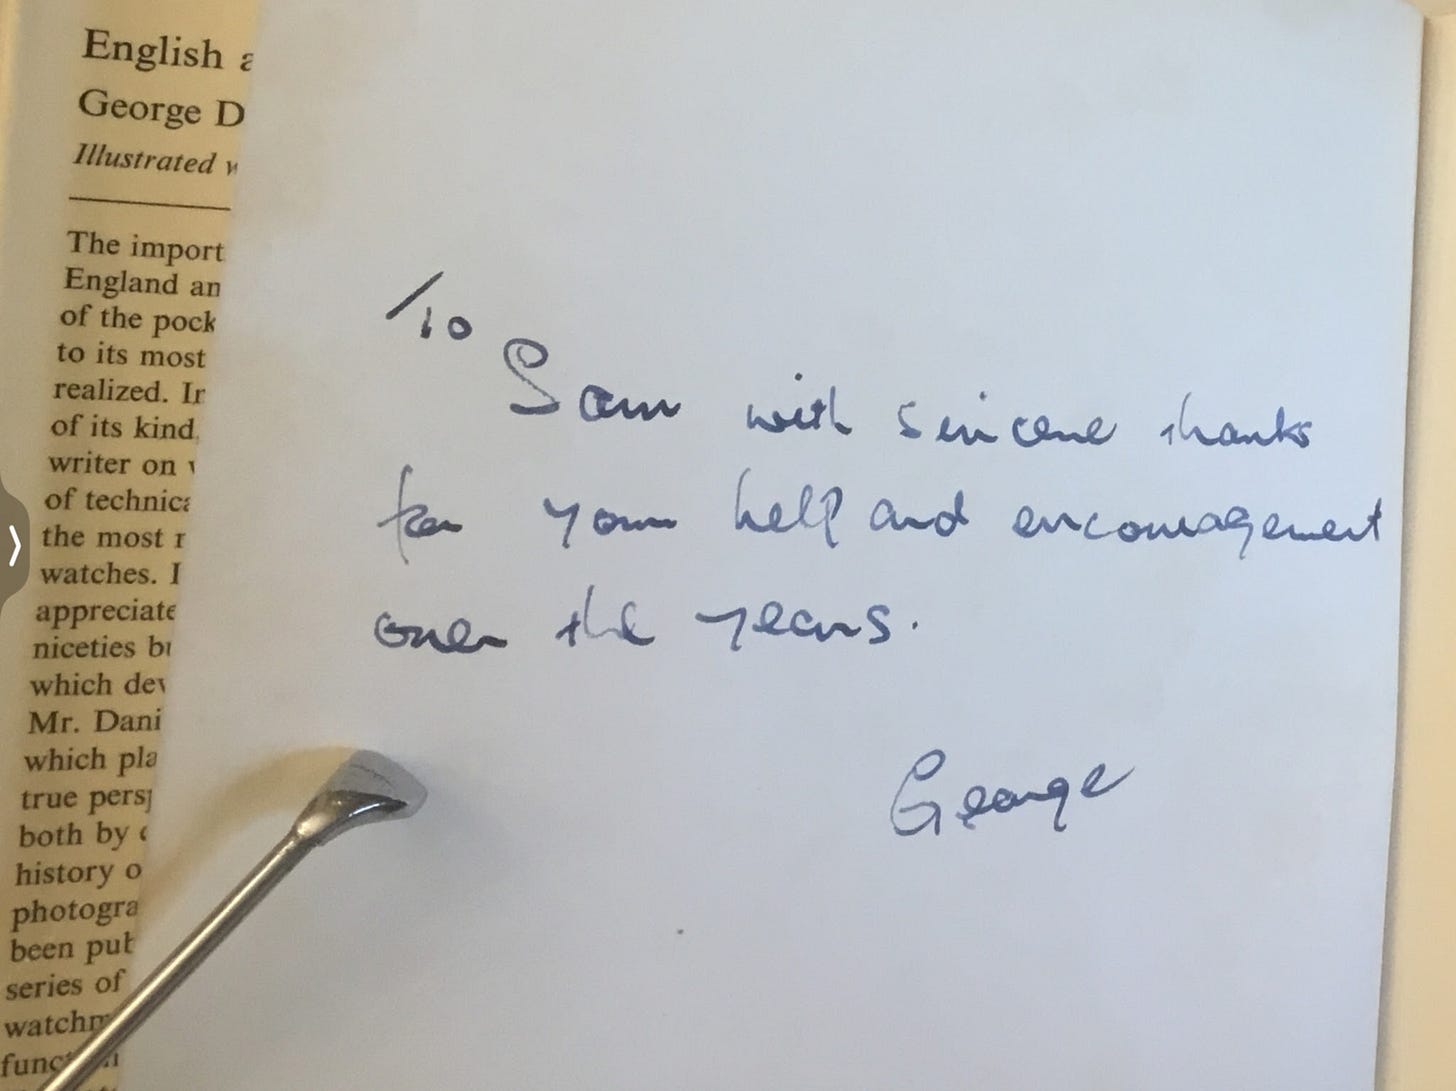 English a
George D
Illustrated w
The import
England an
of the pock
to its most
realized. In
of its kind.
writer on
of technica
the most r
watches. I
appreciate
niceties bu
which dev
Mr. Dani
which pla
true persp
both by
history o
photogra
been pub
series of
watchm
To
Sam with sincere thanks
for your help and encouragement
over the years.
George